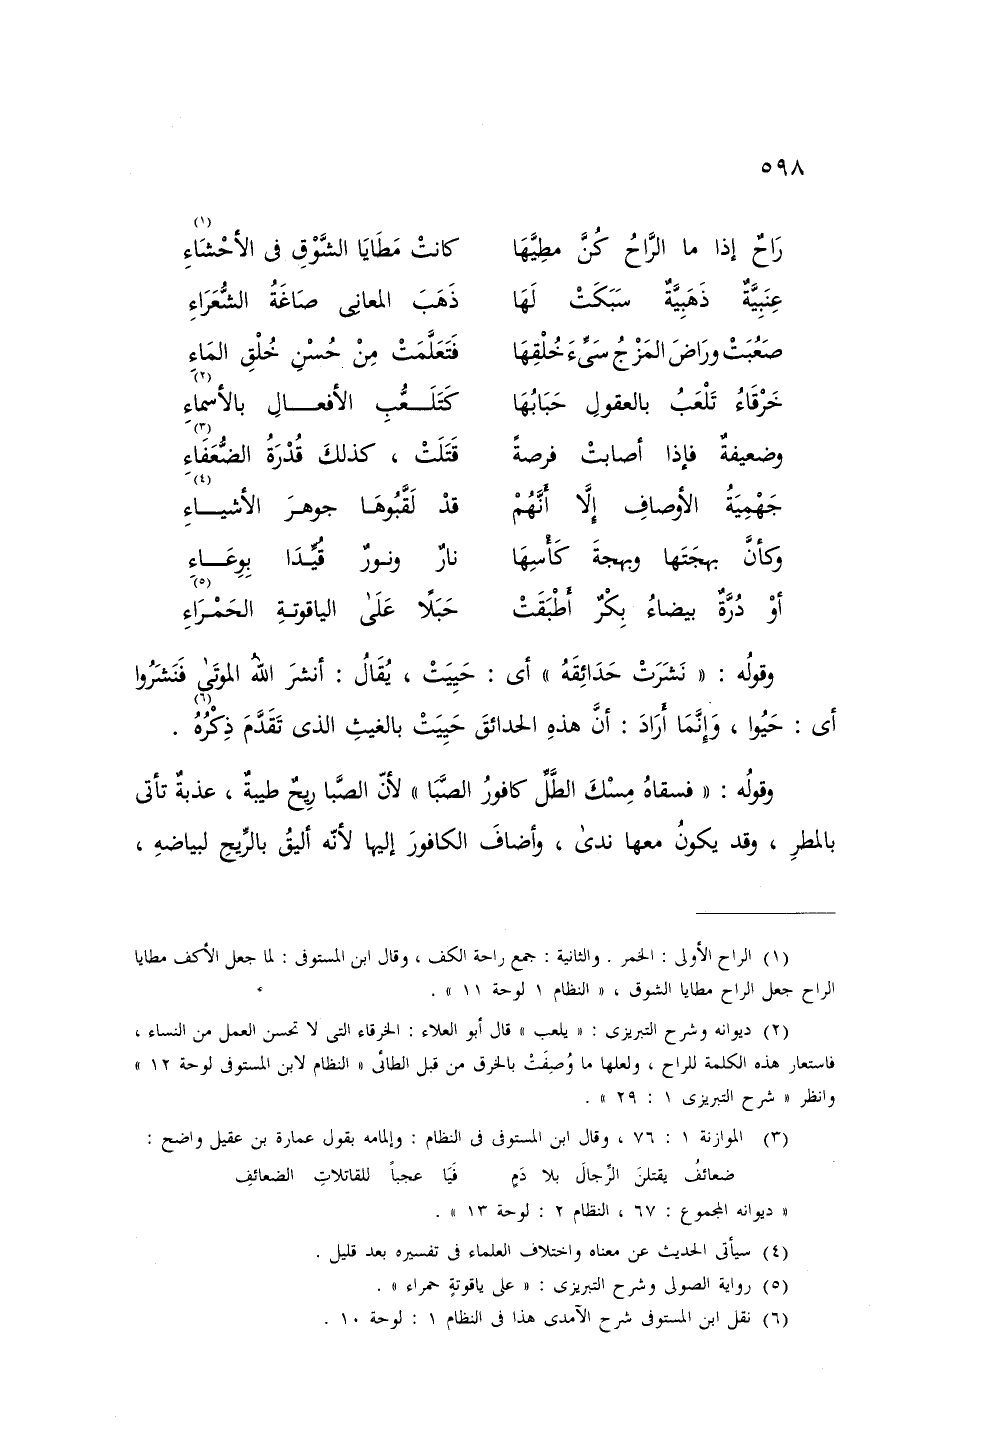 ٥٩٨
رَاحٌ إذا ما الرَّاحُ كُنَّ مطِيَّهَا كانتْ مَطَايَا الشَّوْقِ فى الأحْشَاءِ (١)
عِنَبِيَّةٌ ذَهَبِيَّةٌ سَبَكَتْ لَهَا ذَهَبَ المعانِى صَاغَةُ الشُّعَرَاءِ
صَعُبَتْ ورَاضَ المَزْجُ سَىِّءَ خُلْقِهَا فَتَعَلَّمَتْ مِنْ حُسْنِ خُلْقِ المَاءِ
خَرْقَاءُ تَلْعَبُ بالعقولِ حَبَابُهَا كَتَلَعُّبِ الأفعالِ بالأسماءِ (٢)
وضعيفةٌ فإذا أصابتْ فرصةً قَتَلَتْ ، كذلكَ قُدْرَةُ الضُّعَفَاءِ (٣)
جَهْمِيَةُ الأوصافِ إلَّا أَنَّهُمْ قدْ لَقَّبُوهَا جوهرَ الأشياءِ (٤)
وكأنَّ بهجتَها وبهجةَ كَأْسِهَا نارٌ ونورٌ قُيِّدَا بِوِعَاءِ
أوْ دُرَّةٌ بيضاءُ بِكْرٌ أَطْبَقَتْ حَبَلًا عَلَىٰ الياقوتةِ الحَمْرَاءِ (٥)
وقولُه : « نَشَرَتْ حَدَائِقَهُ » أى : حَيِيَتْ ، يُقَالُ : أنشرَ اللهُ الموتَىٰ فَنَشَرُوا
أى : حَيُوا ، وَإِنَّمَا أَرَادَ : أنَّ هذهِ الحدائقَ حَيِيَتْ بالغيثِ الذى تَقَدَّمَ ذِكْرُهُ (٦) .
وقولُه : « فسقاهُ مِسْكَ الطَّلِّ كافورُ الصَّبَا » لأنّ الصَّبا رِيحٌ طيبةٌ ، عذبةٌ تأتى
بالمطرِ ، وقد يكونُ معها ندىٰ ، وأضافَ الكافورَ إليها لأنّه أليقُ بالرِّيحِ لبياضهِ ،
(١) الراح الأولى : الخمر . والثانية : جمع راحة الكف ، وقال ابن المستوفى : لما جعل الأكف مطايا
الراح جعل الراح مطايا الشوق ، « النظام ١ لوحة ١١ » .
(٢) ديوانه وشرح التبريزى : « يلعب » قال أبو العلاء : الخرقاء التى لا تحسن العمل من النساء ،
فاستعار هذه الكلمة للراح ، ولعلها ما وُصِفَتْ بالخرق من قبل الطائى « النظام لابن المستوفى لوحة ١٢ »
وانظر « شرح التبريزى ١ : ٢٩ » .
(٣) الموازنة ١ : ٧٦ ، وقال ابن المستوفى فى النظام : وإلمامه بقول عمارة بن عقيل واضح :
ضعائفُ يقتلنَ الرِّجالَ بلا دَمٍ فَيَا عجباً للقاتلاتِ الضعائفِ
« ديوانه المجموع : ٦٧ ، النظام ٢ : لوحة ١٣ » .
(٤) سيأتى الحديث عن معناه واختلاف العلماء فى تفسيره بعد قليل .
(٥) رواية الصولى وشرح التبريزى : « على ياقوتةٍ حمراء » .
(٦) نقل ابن المستوفى شرح الآمدى هذا فى النظام ١ : لوحة ١٠ .